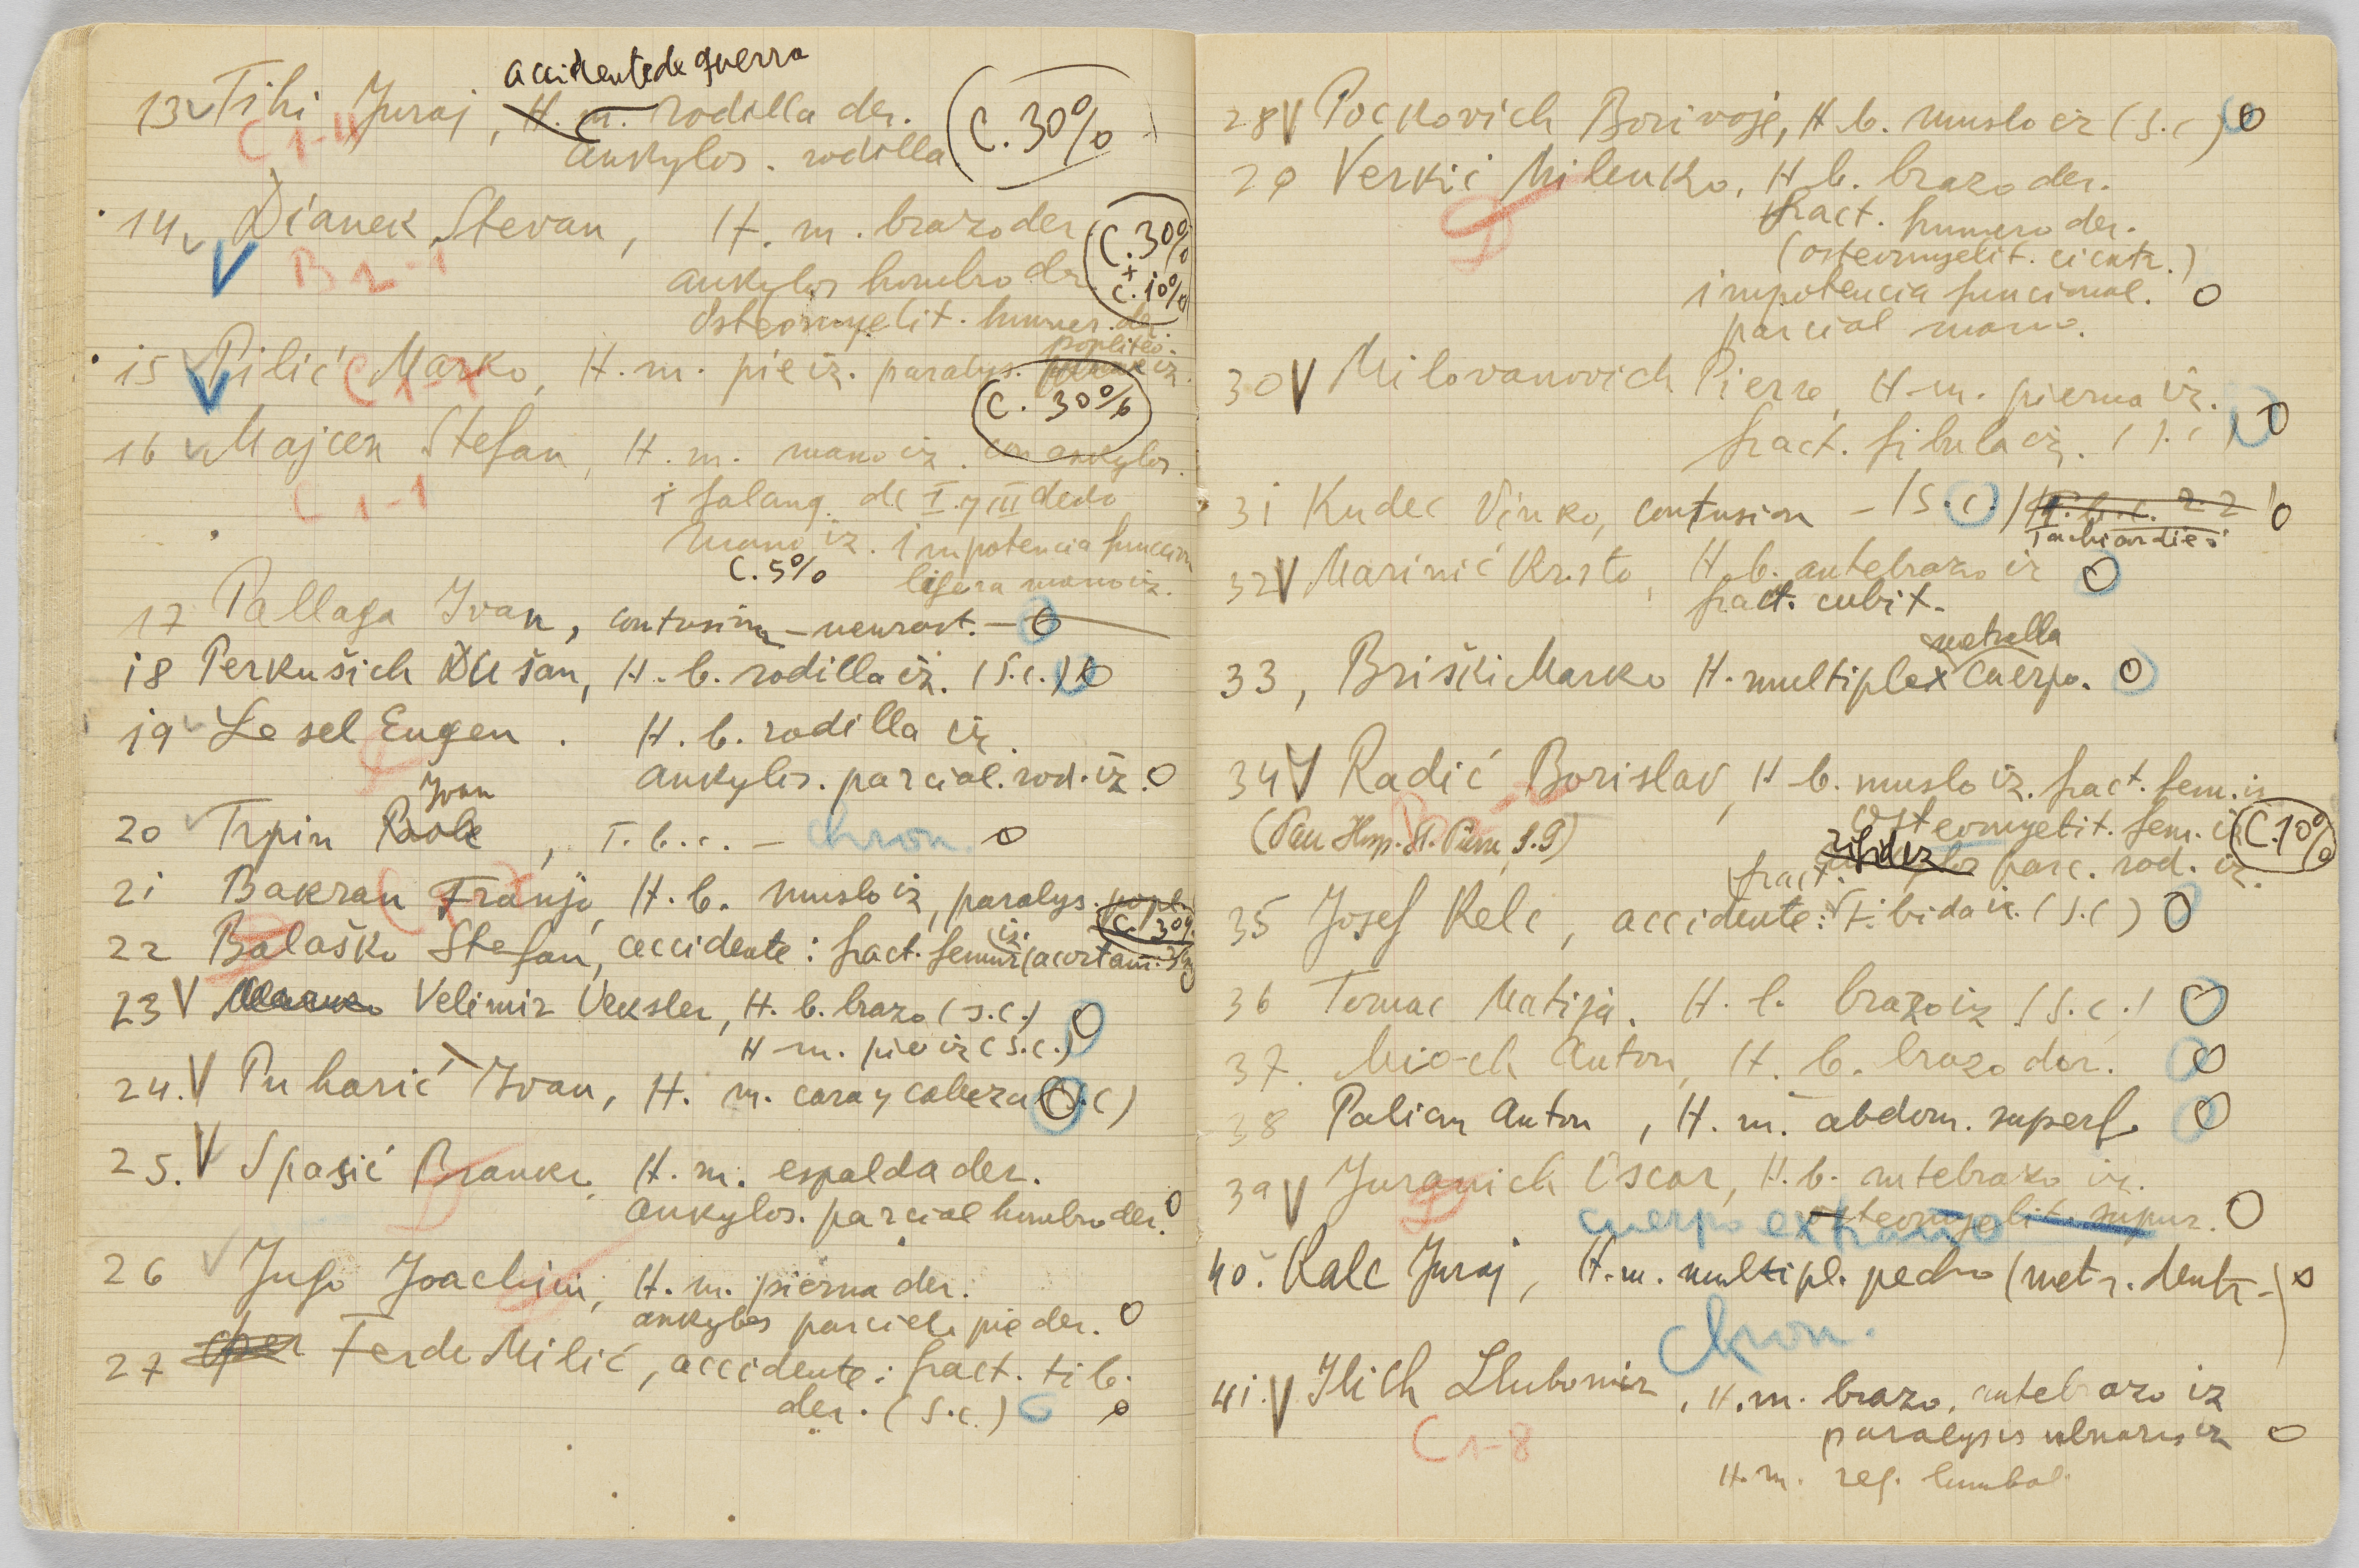 accidente de guerra
13 Tihi Juraj, H. m. rodilla der. C. 30%
C 1-4
ankylos. rodilla
14 Dianek Stevan, H. m. brazo der C. 30%
B 2-1
ankylos hombro der + C. 10%
Osteomyelit. humer. der.
popliteo.
15 Pilić Marko, H. m. pie iz. paralys. iz.
C 1-7
C. 30%
16 Majcen Stefan, H. m. mano iz. con ankylos.
C 1-1
1 falang. de I y III dedo
mano iz. impotencia funccion
C. 5% ligera mano iz.
17 Pallaga Ivan, contusion - neurast. - 0
18 Perkušich Dušan, H. b. rodilla iz. (S.c.) 0
19 Lesel Eugen. H. b. rodilla iz.
ankylos. parcial. rod. iz. 0
Ivan
20 Trpin, T. b. c. - chron. 0
21 Bakran Franjo, H. b. muslo iz, paralys. popl.
C. 30%
22 Balaško Stefan, accidente: fract. femur iz. (acortam. 3
23 V Velimir Veksler, H. b. brazo (s.c.) 0
H m. pie iz (s.c.)
24. V Puharić Ivan, H. m. cara y cabeza (s.c) 0
25. V Spasić Branko, H. m. espalda der.
D
ankylos. parcial hombro der. 0
26 Jugo Joachim, H. m. pierna der.
ankylos parciel. pie der. 0
27 Ferdo Milić, accidente: fract. tib.
der. (s.c.) 0
28 V Pockovich Borivoje, H b. muslo iz (s.c) 0
29 Verkić Milenko, H b. brazo der.
D
fract. humero der.
(osteomyelit. cicatr.)
impotencia funcional. 0
parcial mano.
30 V Milovanovich Pierre, H. m. pierna iz.
fract. fibula iz. (s.c) 0
31 Kudec Vinko, contusion - (s.c.) T.b.c. 2 2 0
Tachicardies
32 V Marinić Krsto, H. b. antebrazo iz 0
fract. cubit.
metralla
33, Briški Marko H. multiplex cuerpo. 0
34 V Radić Borislav, H b. muslo iz. fract. fem. iz
(Pau Hosp. St. Pierre, S.9) Osteomyelit. fem. iz C. 10%
rigidez parc. rod. iz.
fract.
35 Josef Kelc, accidente: tibida iz. (s.c) 0
36 Tomac Matija. H. b. brazo iz (s.c.) 0
37. Mioch Anton, H. b. brazo der. 0
38 Palian Anton, H. m. abdom. superf. 0
39 V Juranich Oscar, H. b. antebrazo iz.
D
osteomyelit. supur. 0
cuerpo extraño
40. Kalc Juraj, H. m. multipl. pecho (metr. dentr.) 0
chron.
41. V Ilich Llubomir, H. m. brazo, antebrazo iz
C 1-8
paralysis ulnaris iz 0
H. m. reg. lumbal